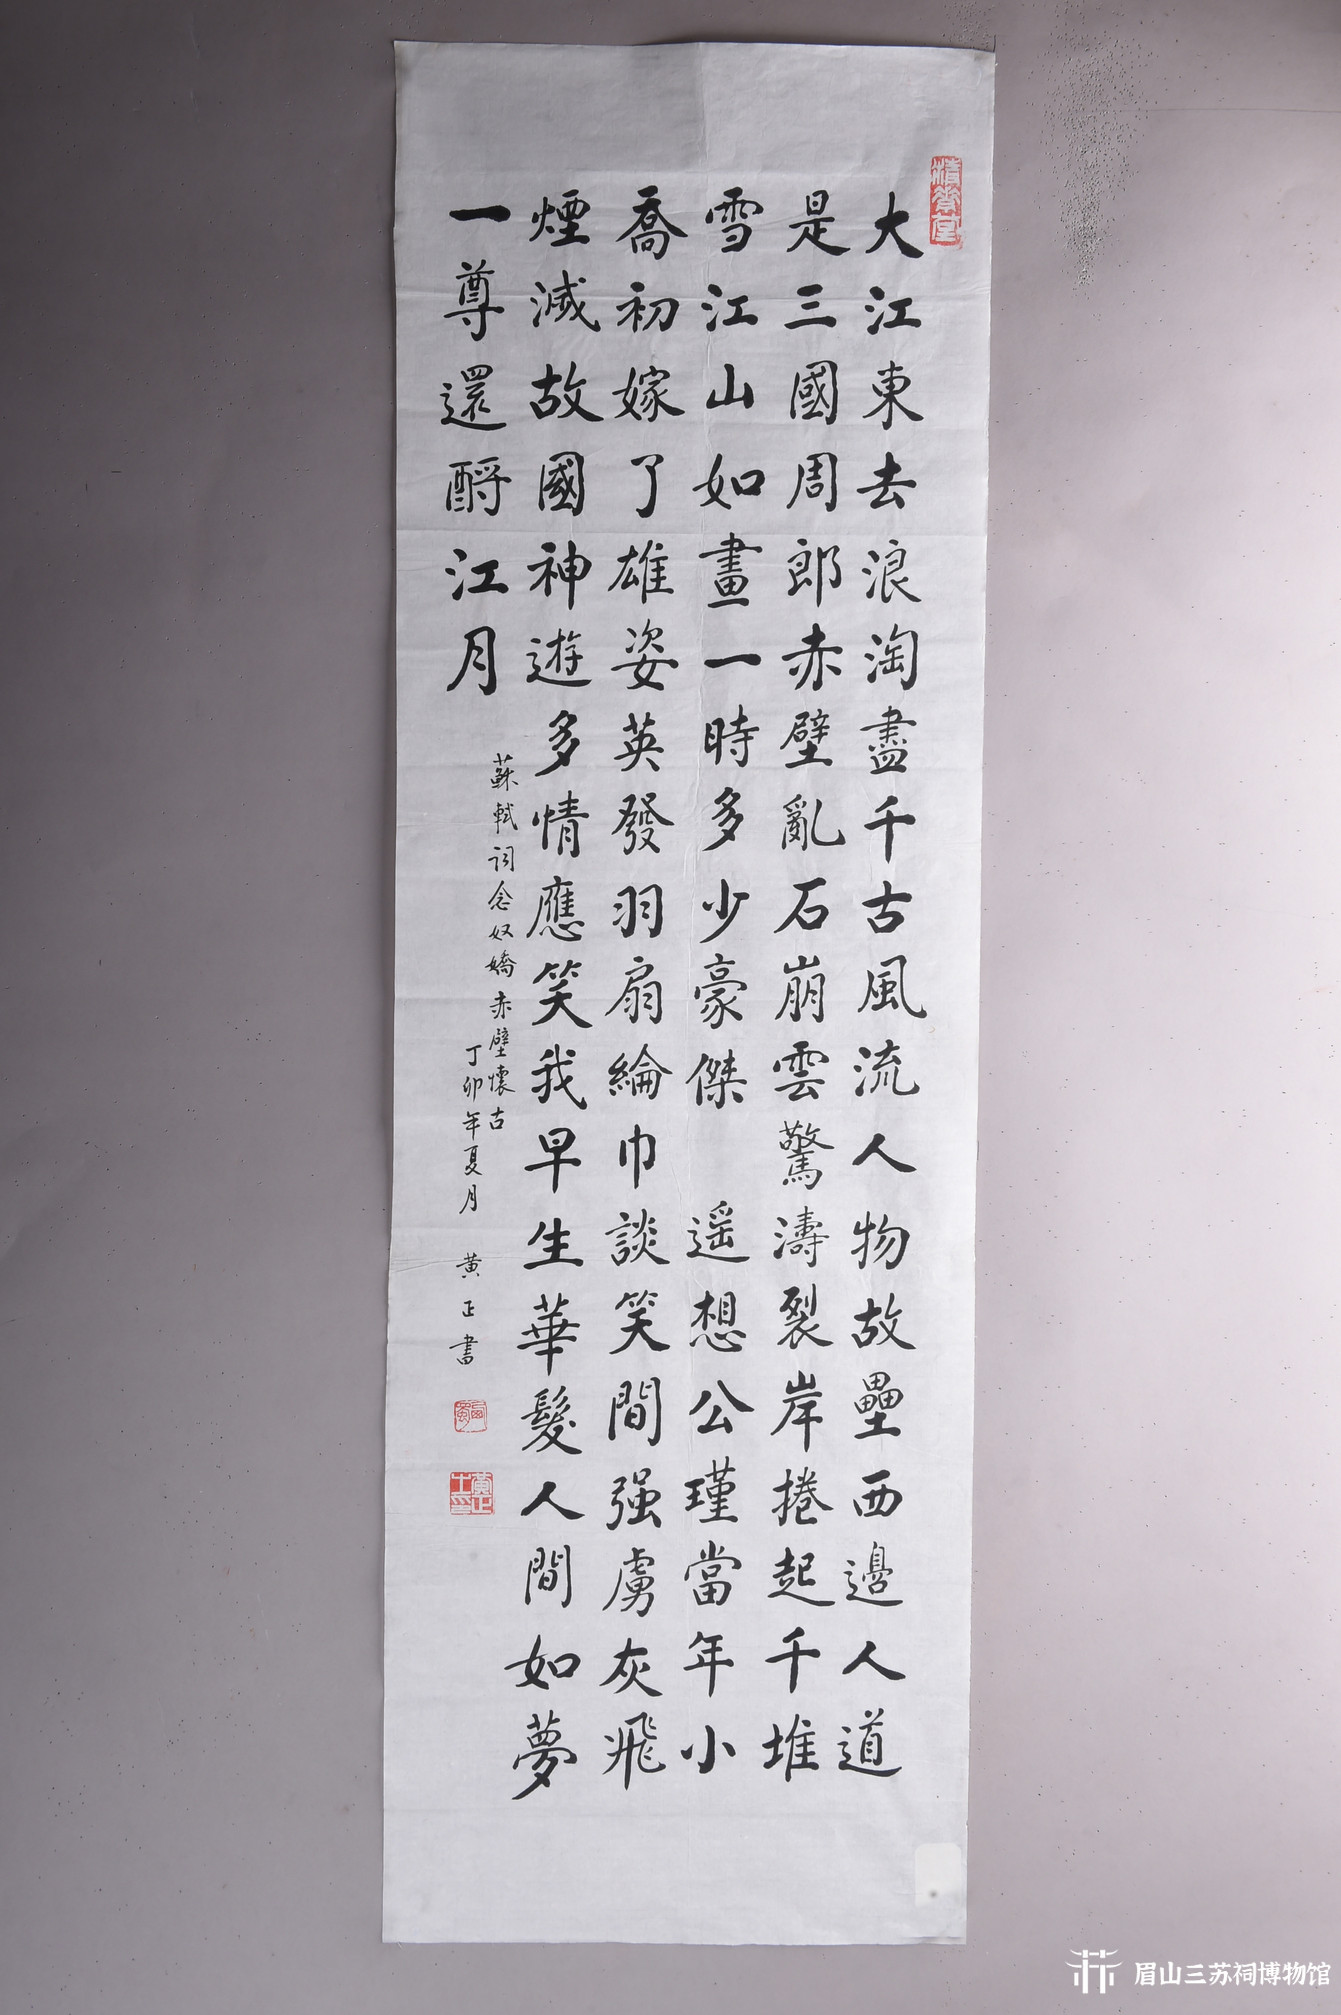 大江東去浪淘盡千古風流人物故壘西邊人道
是三國周郎赤壁亂石崩雲驚濤裂岸捲起千堆
雪江山如畫一時多少豪傑 遥想公瑾當年小
喬初嫁了雄姿英發羽扇綸巾談笑間强虜灰飛
煙滅故國神遊多情應笑我早生華髮人間如夢
一尊還酹江月
蘇軾詞念奴嬌赤壁懷古
丁卯年夏月 黄正書
眉山三苏祠博物馆